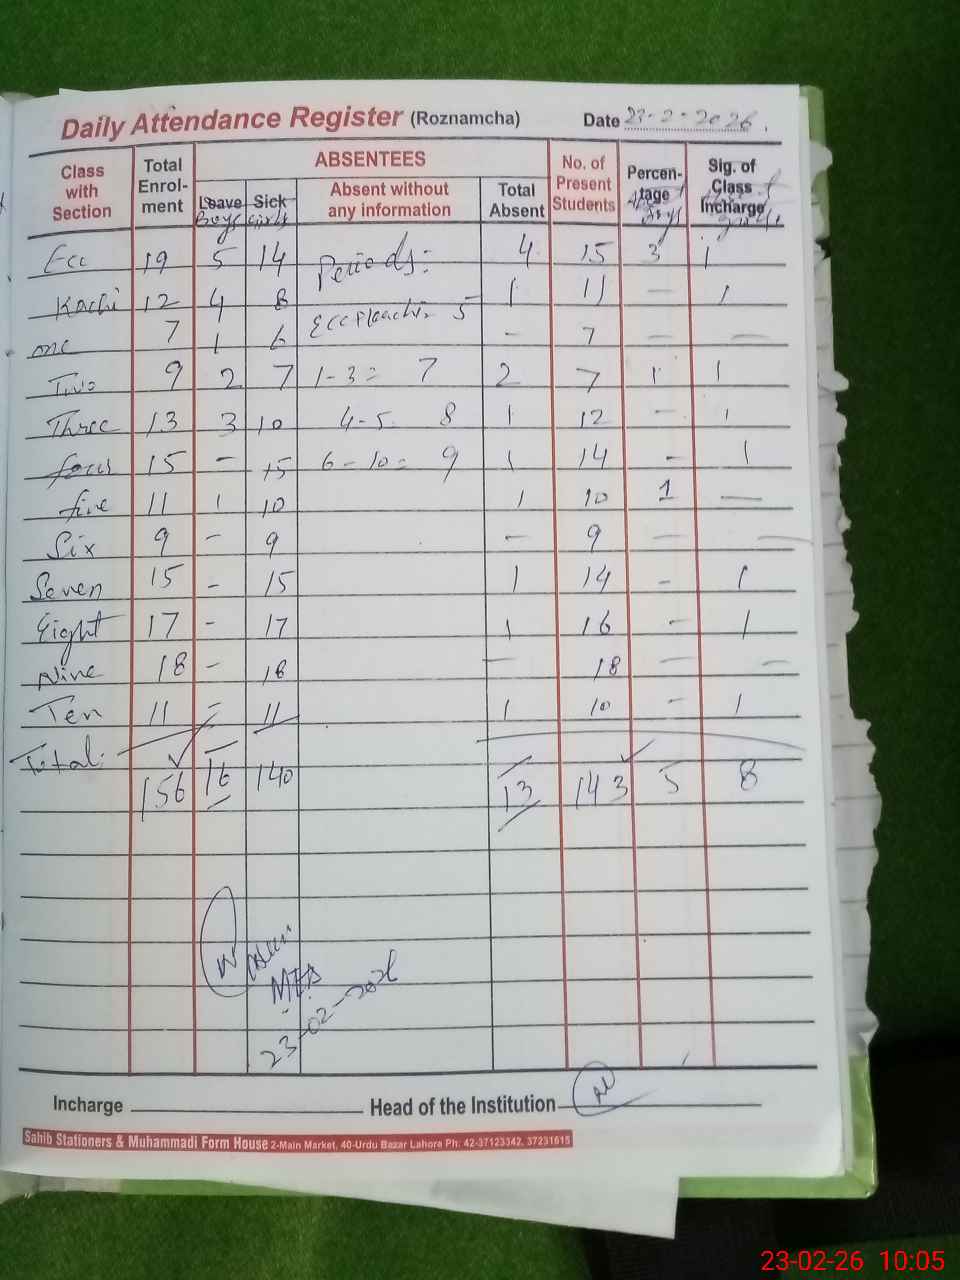 Daily Attendance Register (Roznamcha) Date 23-2-2026
Class with Section Total Enrol-ment ABSENTEES No. of Present Students Percen-tage Sig. of Class Incharge
Leave Sick Absent without any information Total Absent
Boys girls Boys
Ecc 19 5 14 Periods:- 4 15 3 1
Kachi 12 4 8 1 11 - 1
one 7 1 6 5 - 7 - -
Two 9 2 7 1-3= 7 2 7 1 1
Three 13 3 10 4-5. 8 1 12 - 1
four 15 - 15 6-10= 9 1 14 - 1
five 11 1 10 1 10 1 -
Six 9 - 9 - 9 - -
Seven 15 - 15 1 14 - 1
Eight 17 - 17 1 16 - 1
Nine 18 - 18 - 18 - -
Ten 11 - 11 1 10 - 1
Total: 156 16 140 13 143 5 8
23-02-2026
Incharge Head of the Institution
Sahib Stationers & Muhammadi Form House 2-Main Market, 40-Urdu Bazar Lahora Ph: 42-37123342, 37231615
23-02-26 10:05